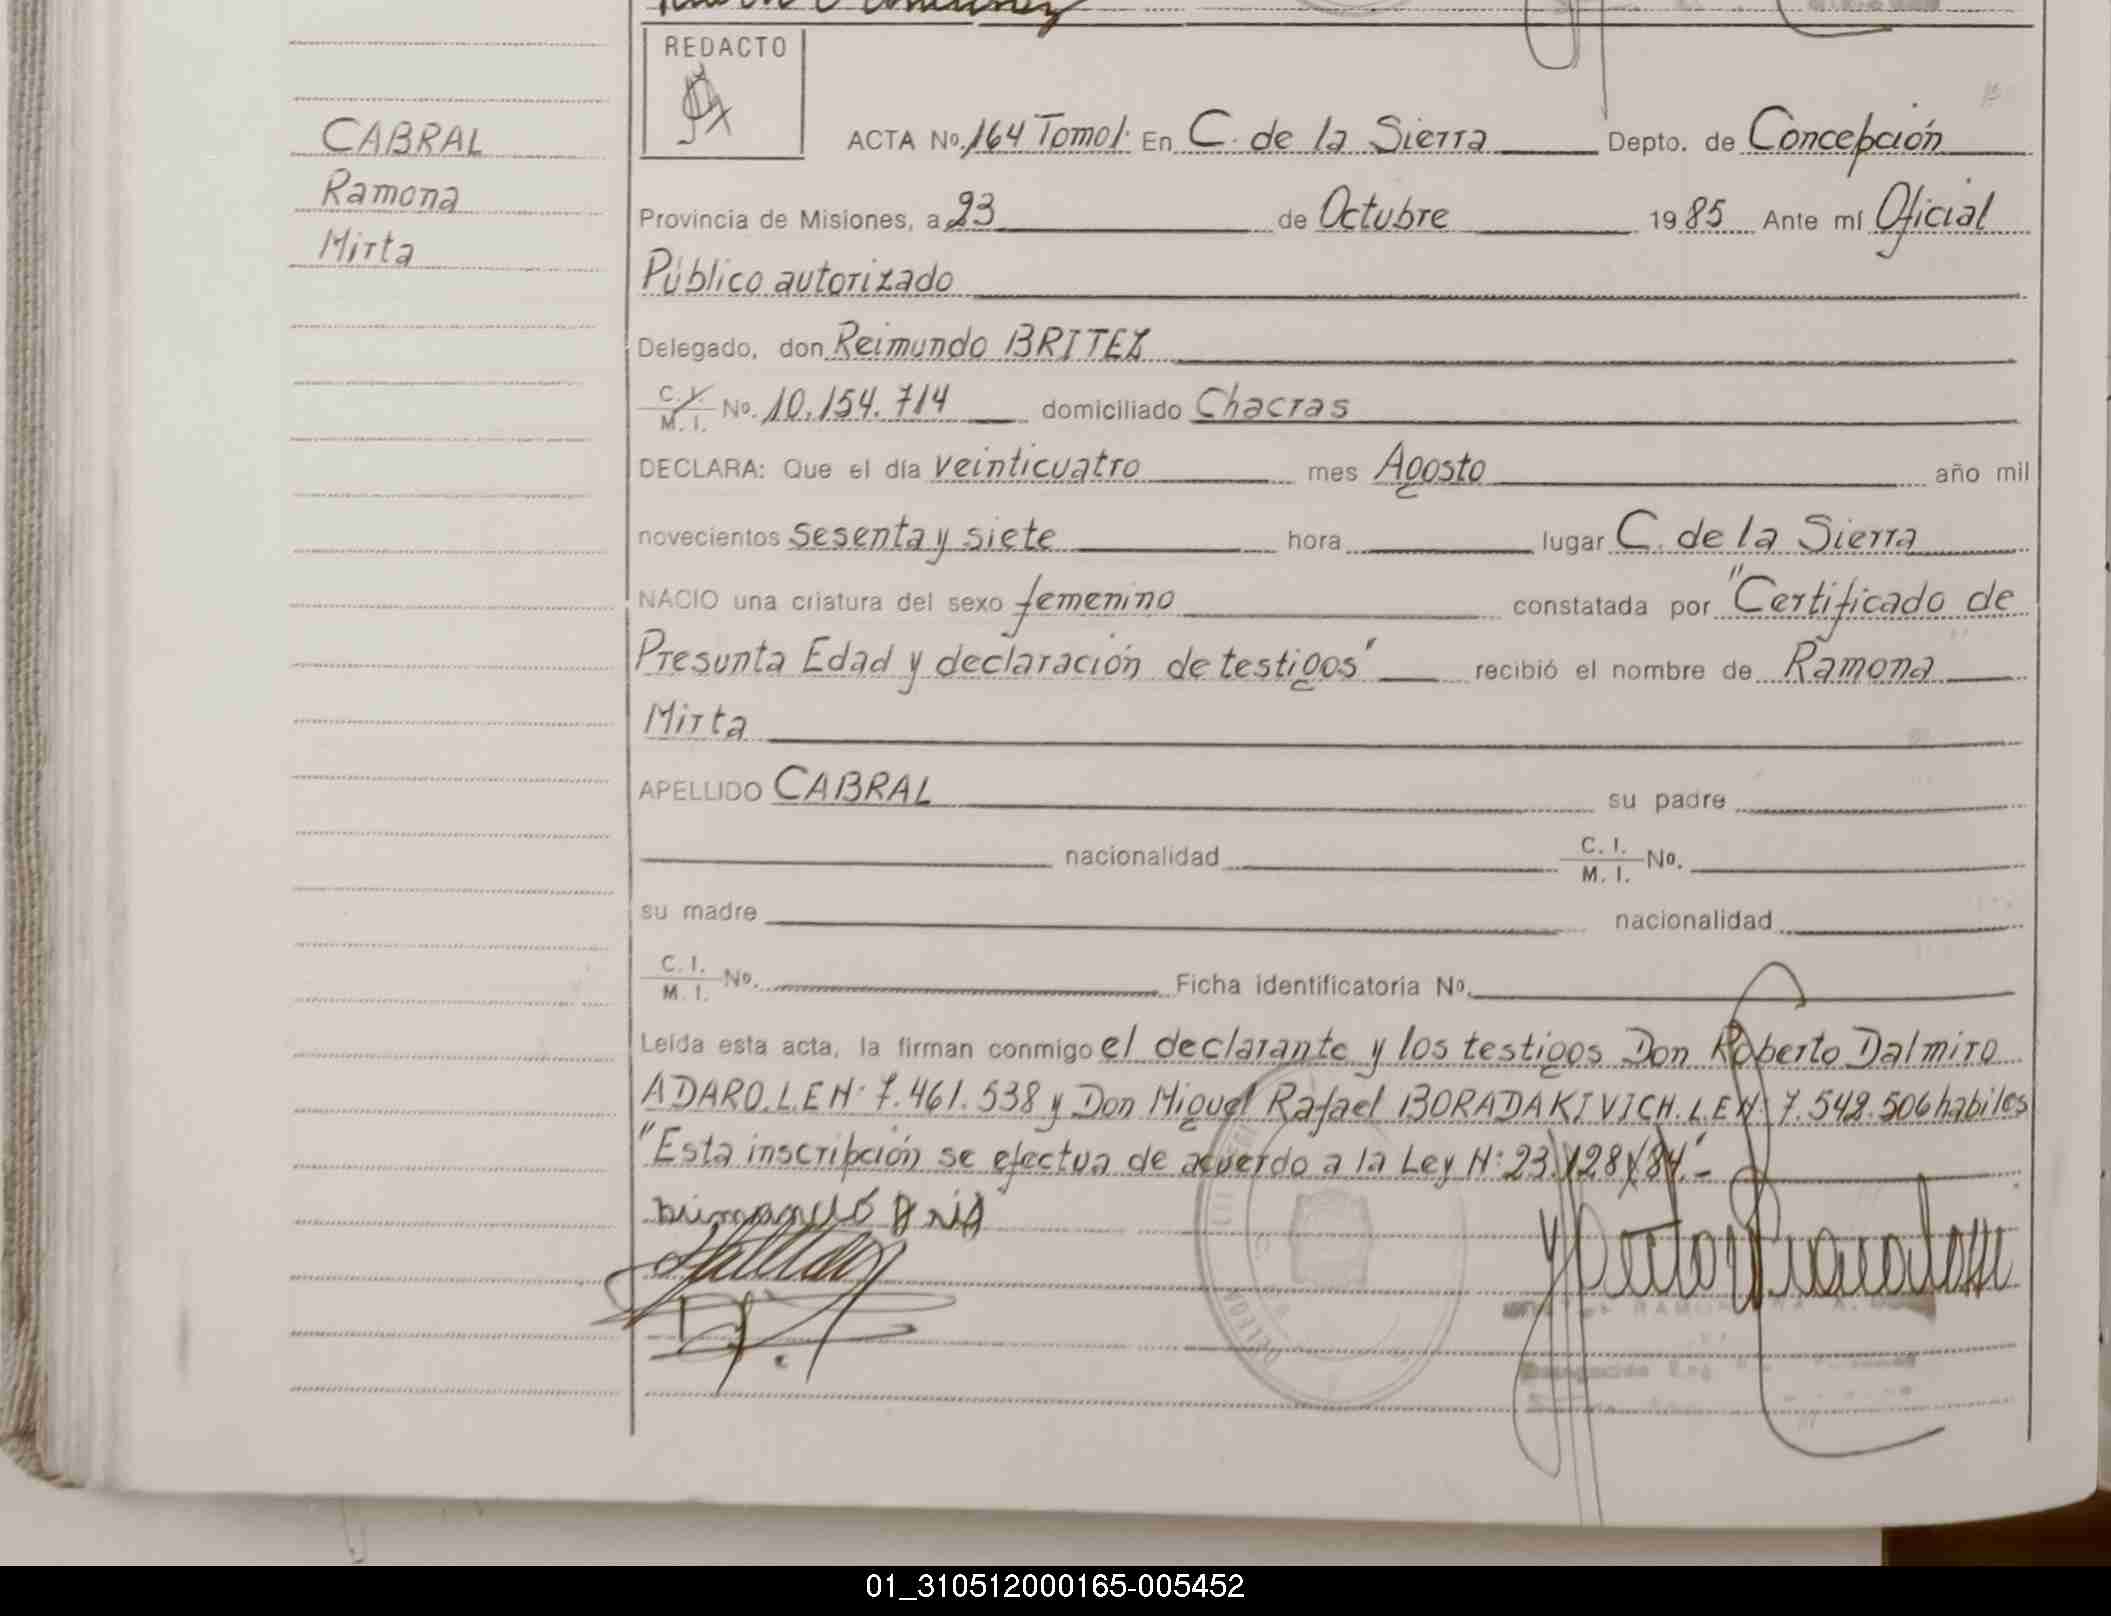 REDACTO
CABRAL
Ramona
Mirta
ACTA No. 164 Tomo I. En C. de la Sierra Depto. de Concepción
Provincia de Misiones, a 23 de Octubre 1985 Ante mí Oficial
Público autorizado
Delegado, don Reimundo BRITEZ
C. I. M. I. No. 10.154.714 domiciliado Chacras
DECLARA: Que el día veinticuatro mes Agosto año mil
novecientos sesenta y siete hora lugar C. de la Sierra
NACIO una criatura del sexo femenino constatada por "Certificado de
Presunta Edad y declaración de testigos" recibió el nombre de Ramona
Mirta
APELLIDO CABRAL su padre
nacionalidad C. I. M. I. No.
su madre nacionalidad
C. I. M. I. No. Ficha identificatoria No.
Leída esta acta, la firman conmigo el declarante y los testigos Don Roberto Dalmiro
ADARO.L.E N: 7.461.538 y Don Miguel Rafael BORADAKIVICH.L.E N: 7.548.506 habiles
"Esta inscripción se efectua de acuerdo a la Ley N: 23.128/84."-
01_310512000165-005452